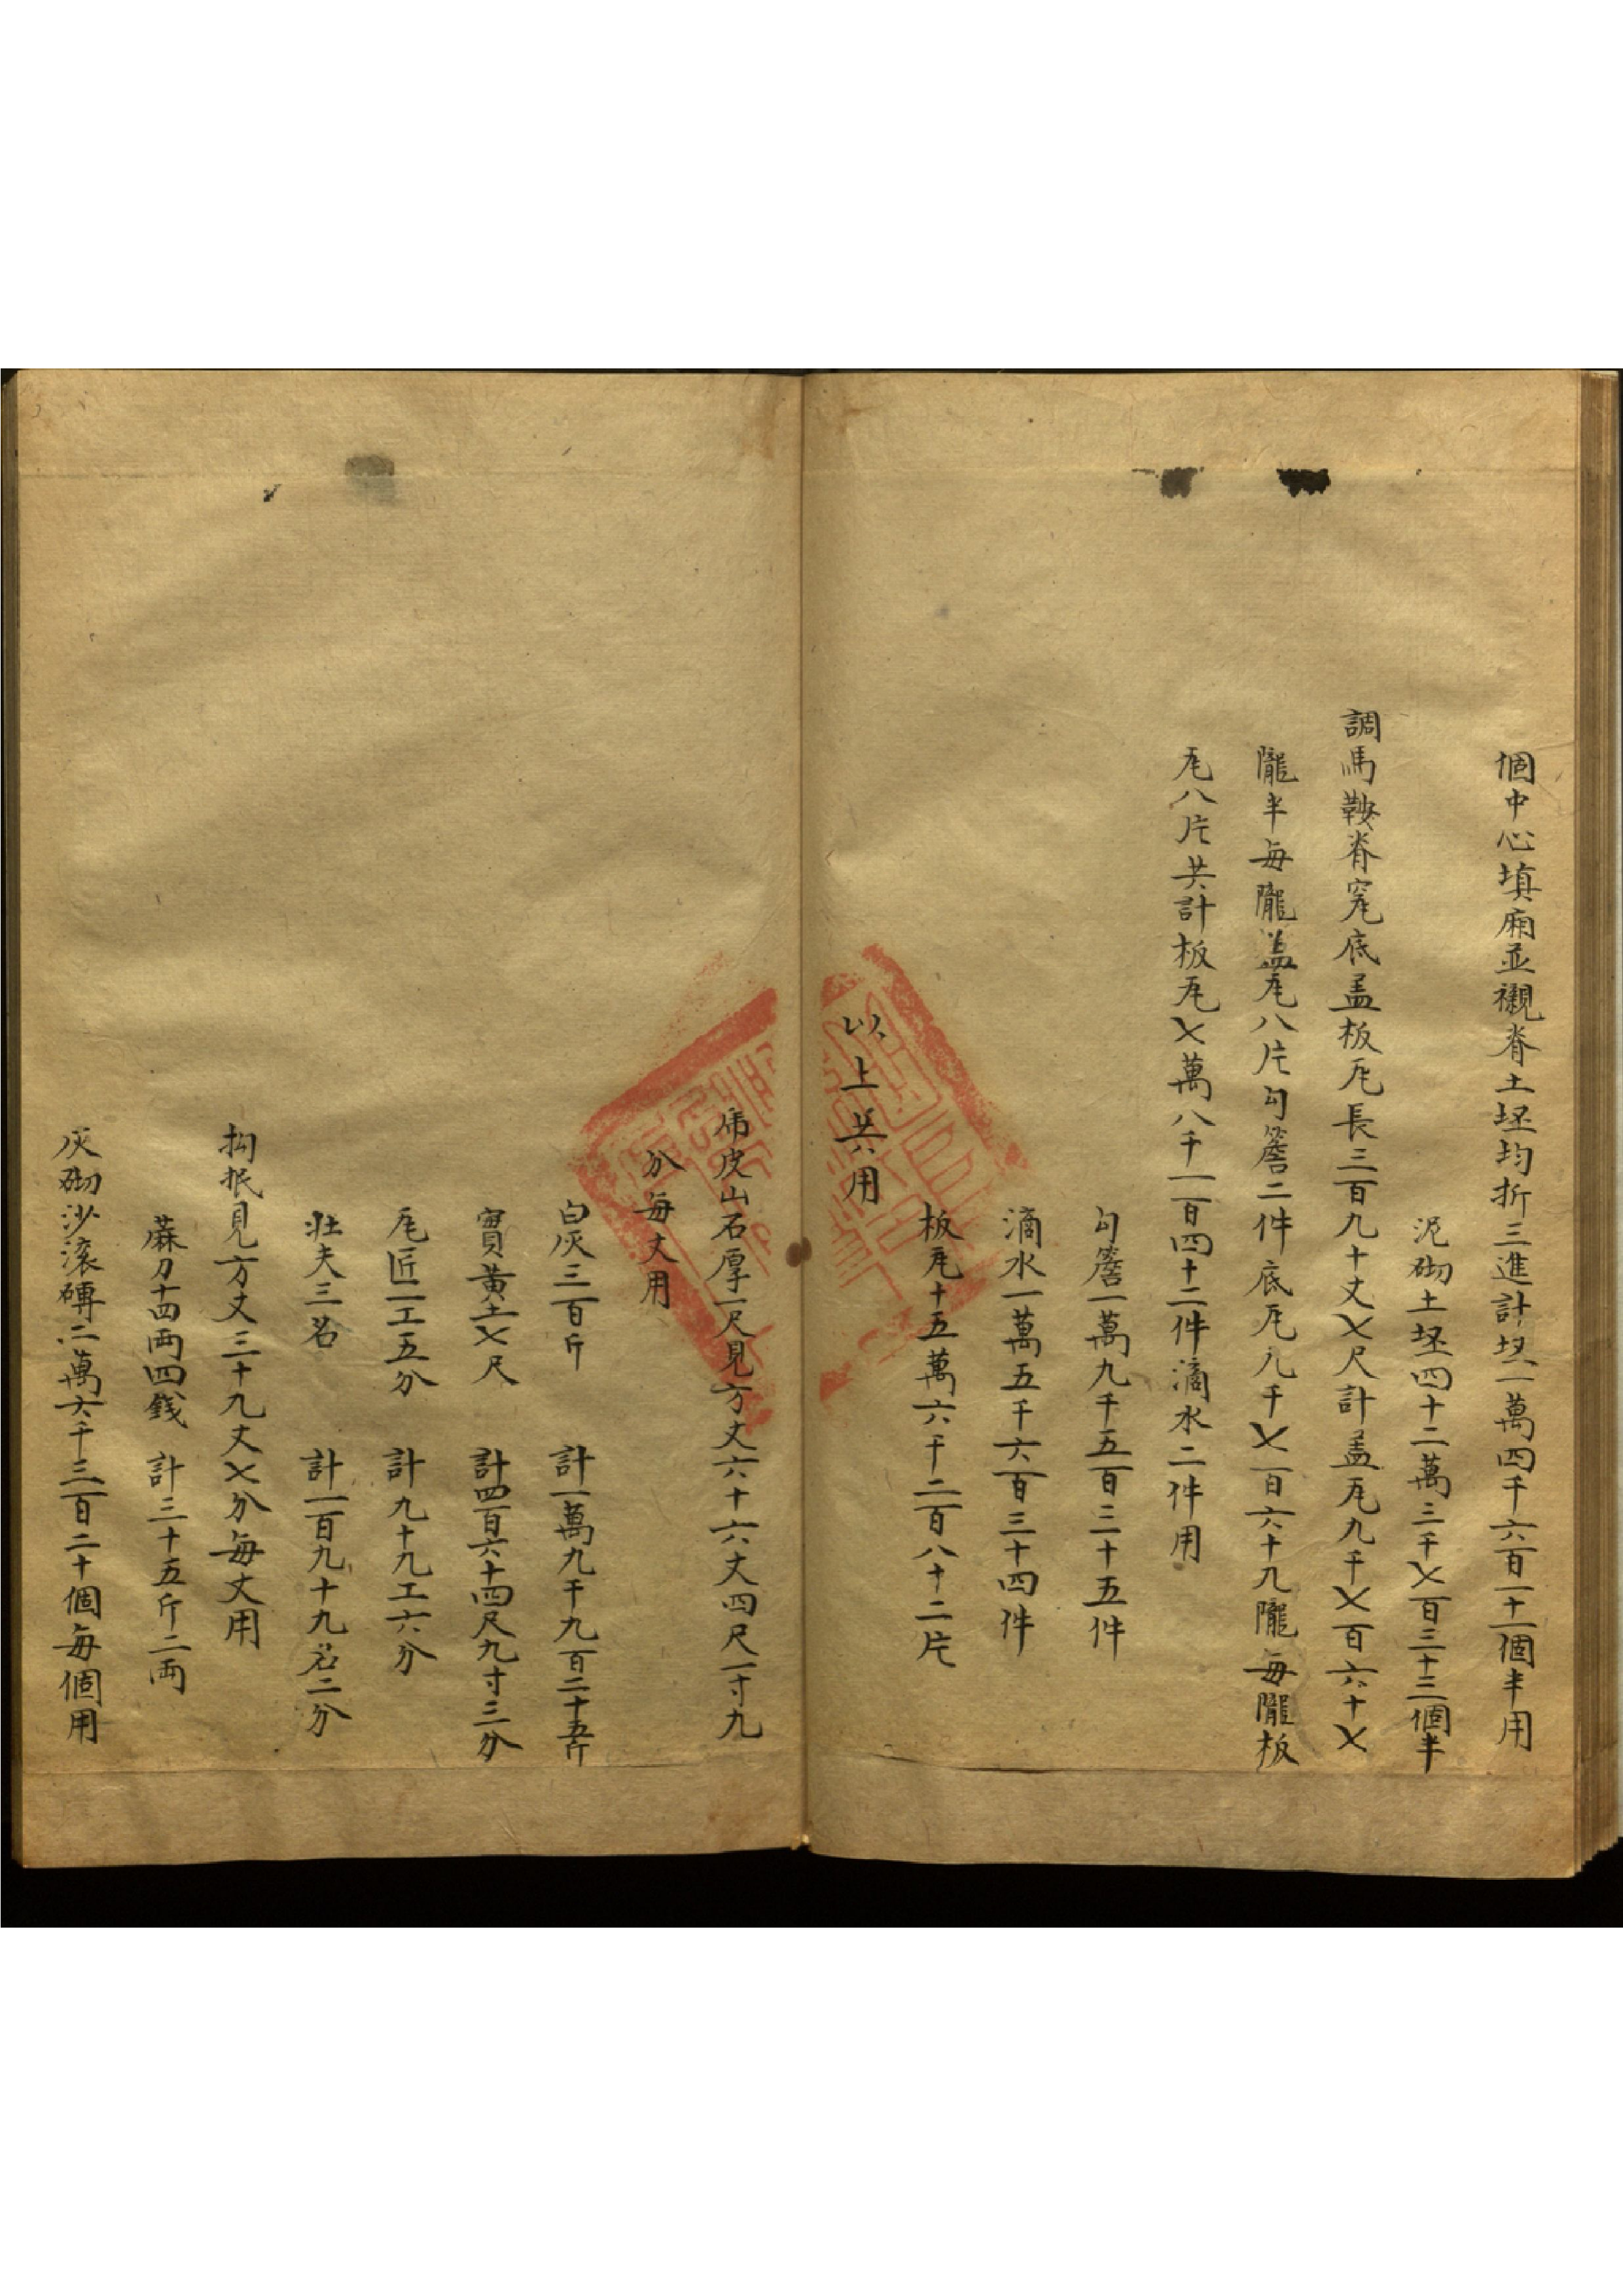 個中心填廂並襯脊土坯均折三進計坯一萬四千六百一十一個半用
泥砌土坯四十二萬三千七百三十三個半
調馬鞍脊窊底盖板瓦長三百九十丈七尺計盖瓦九千七百六十七
隴半每隴盖瓦八片勾簷二件底瓦九千七百六十九隴每隴板
瓦八片共計板瓦七萬八千一百四十二件滴水二件用
勾簷一萬九千五百三十五件
滴水一萬五千六百三十四件
板瓦十五萬六千二百八十二片
以上共用
虎皮山石厚一尺見方丈六十六丈四尺一寸九
分每丈用
白灰三百斤 計一萬九千九百二十五斤
實黃土七尺 計四百六十四尺九寸三分
瓦匠一工五分 計九十九工六分
壯夫三名 計一百九十九名二分
抅抿見方丈三十九丈七分每丈用
蔴刀十四兩四錢 計三十五斤二兩
灰砌沙滚磚二萬六千三百二十個每個用